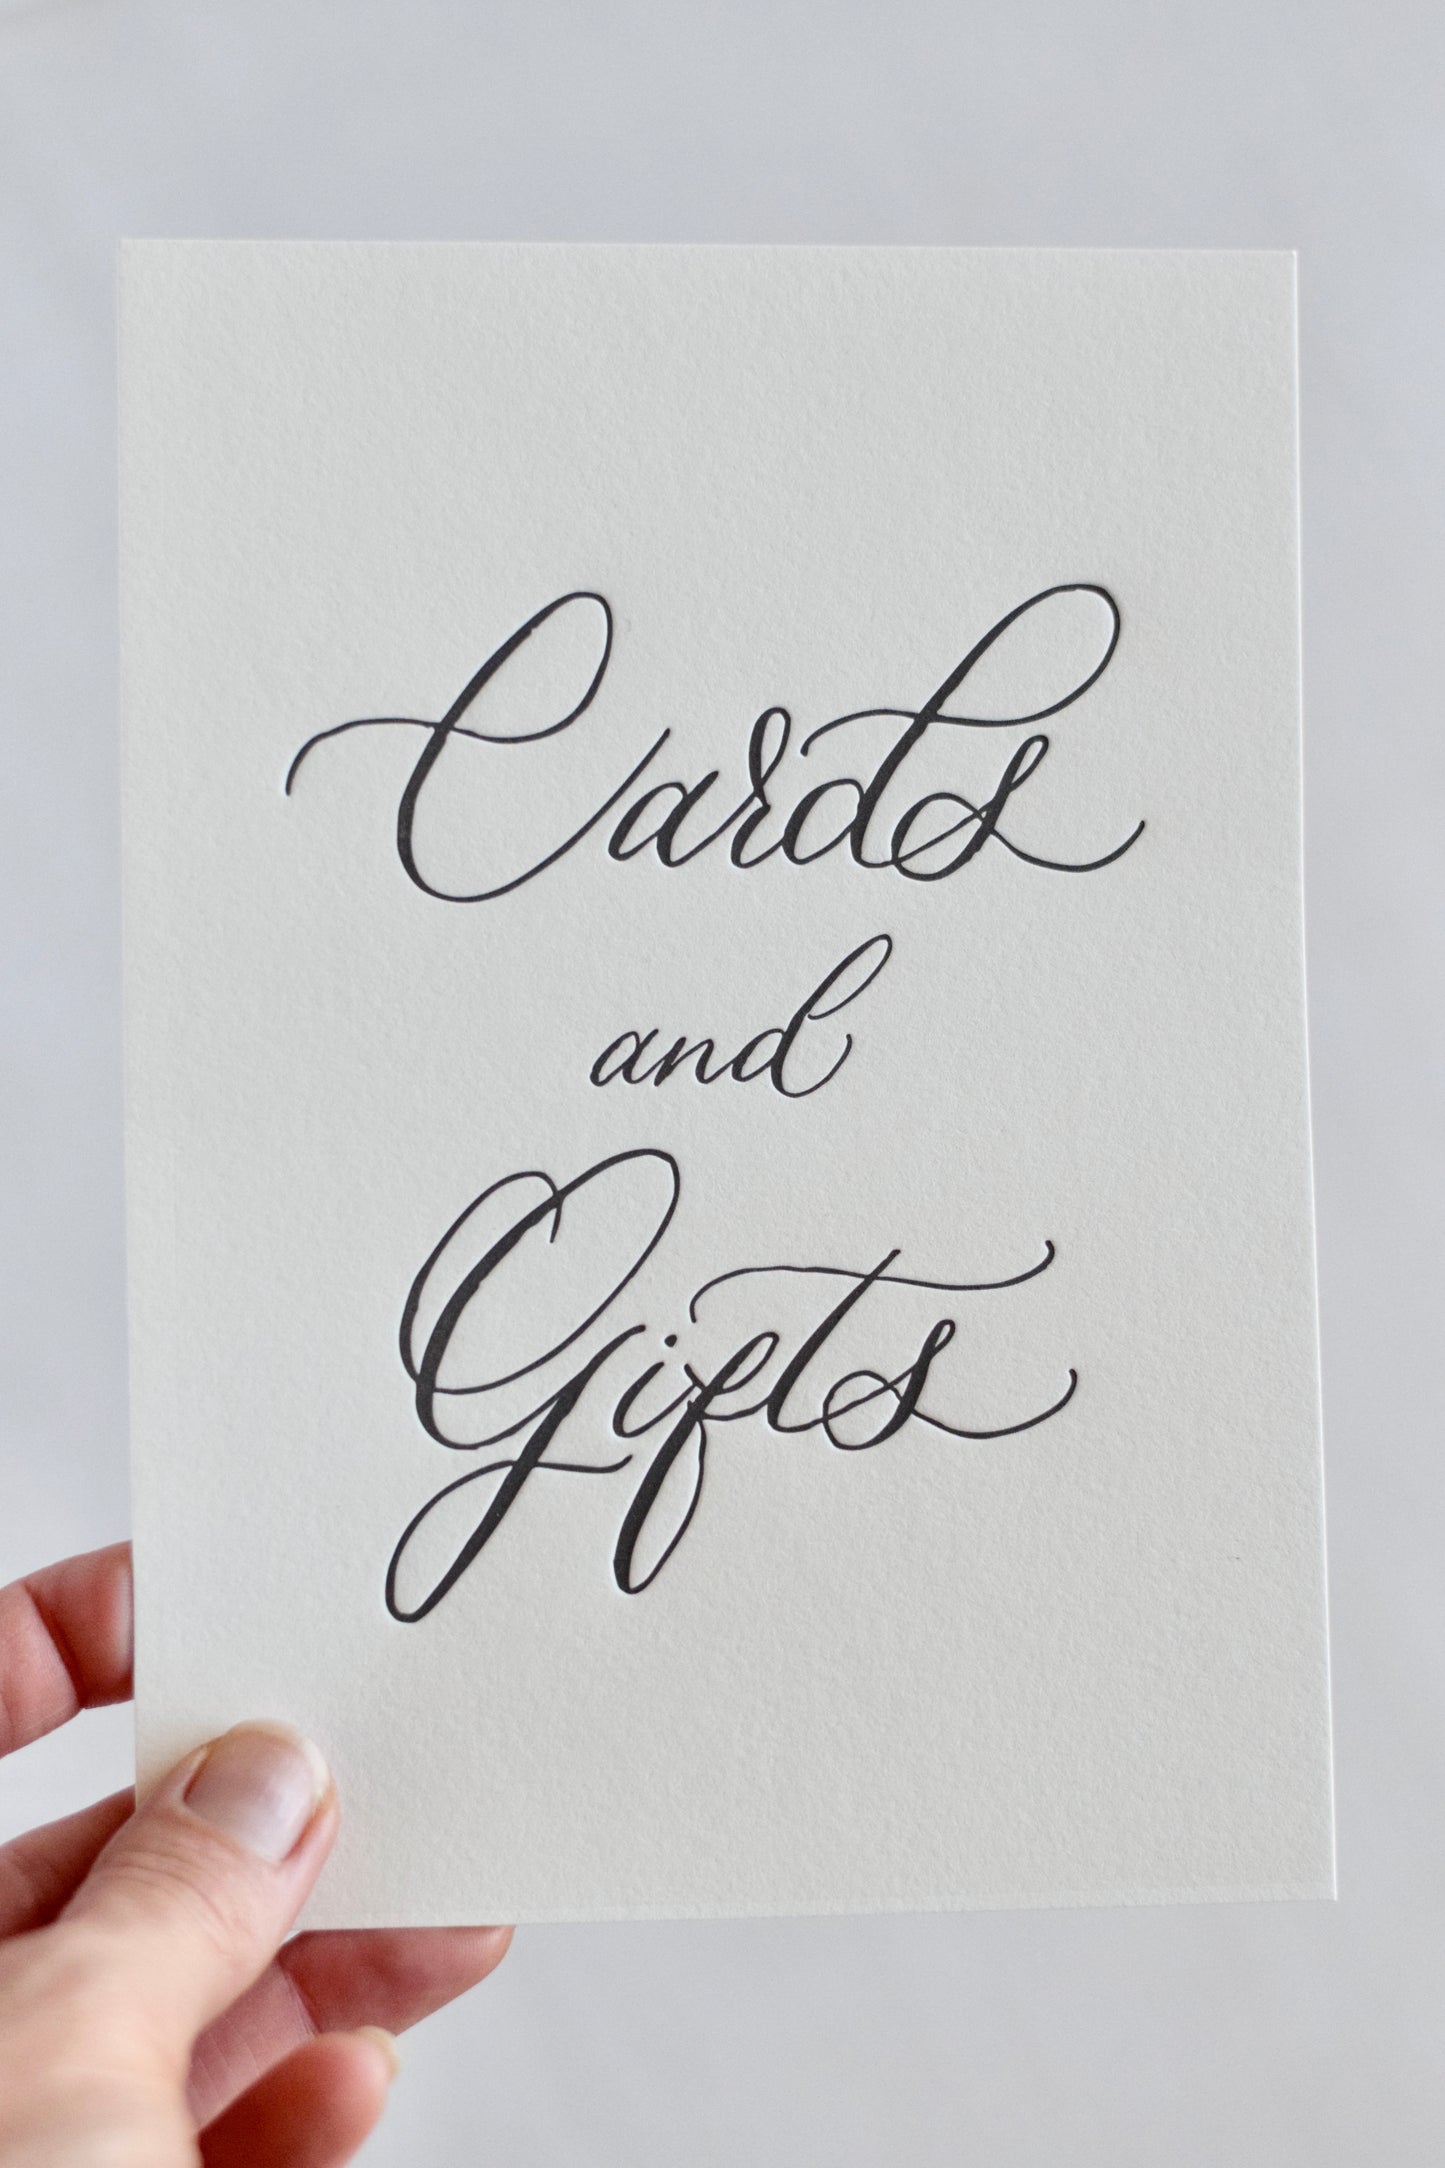 Cards
and
Gifts